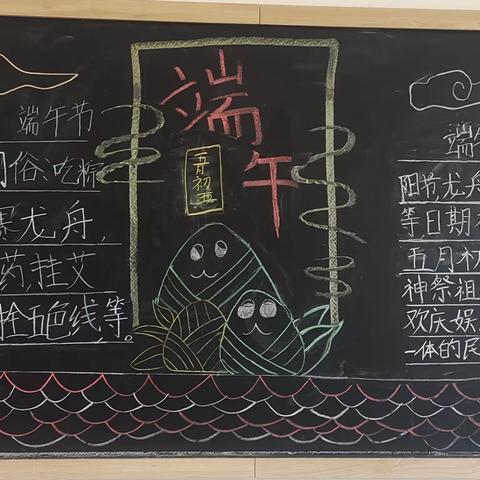 端午节
俗:吃粽
赛龙舟,
药挂艾
拴五色线等。
端午
五月初五
端
阳节龙舟
等日期
五月初
神祭祖
欢庆娱
一体的民